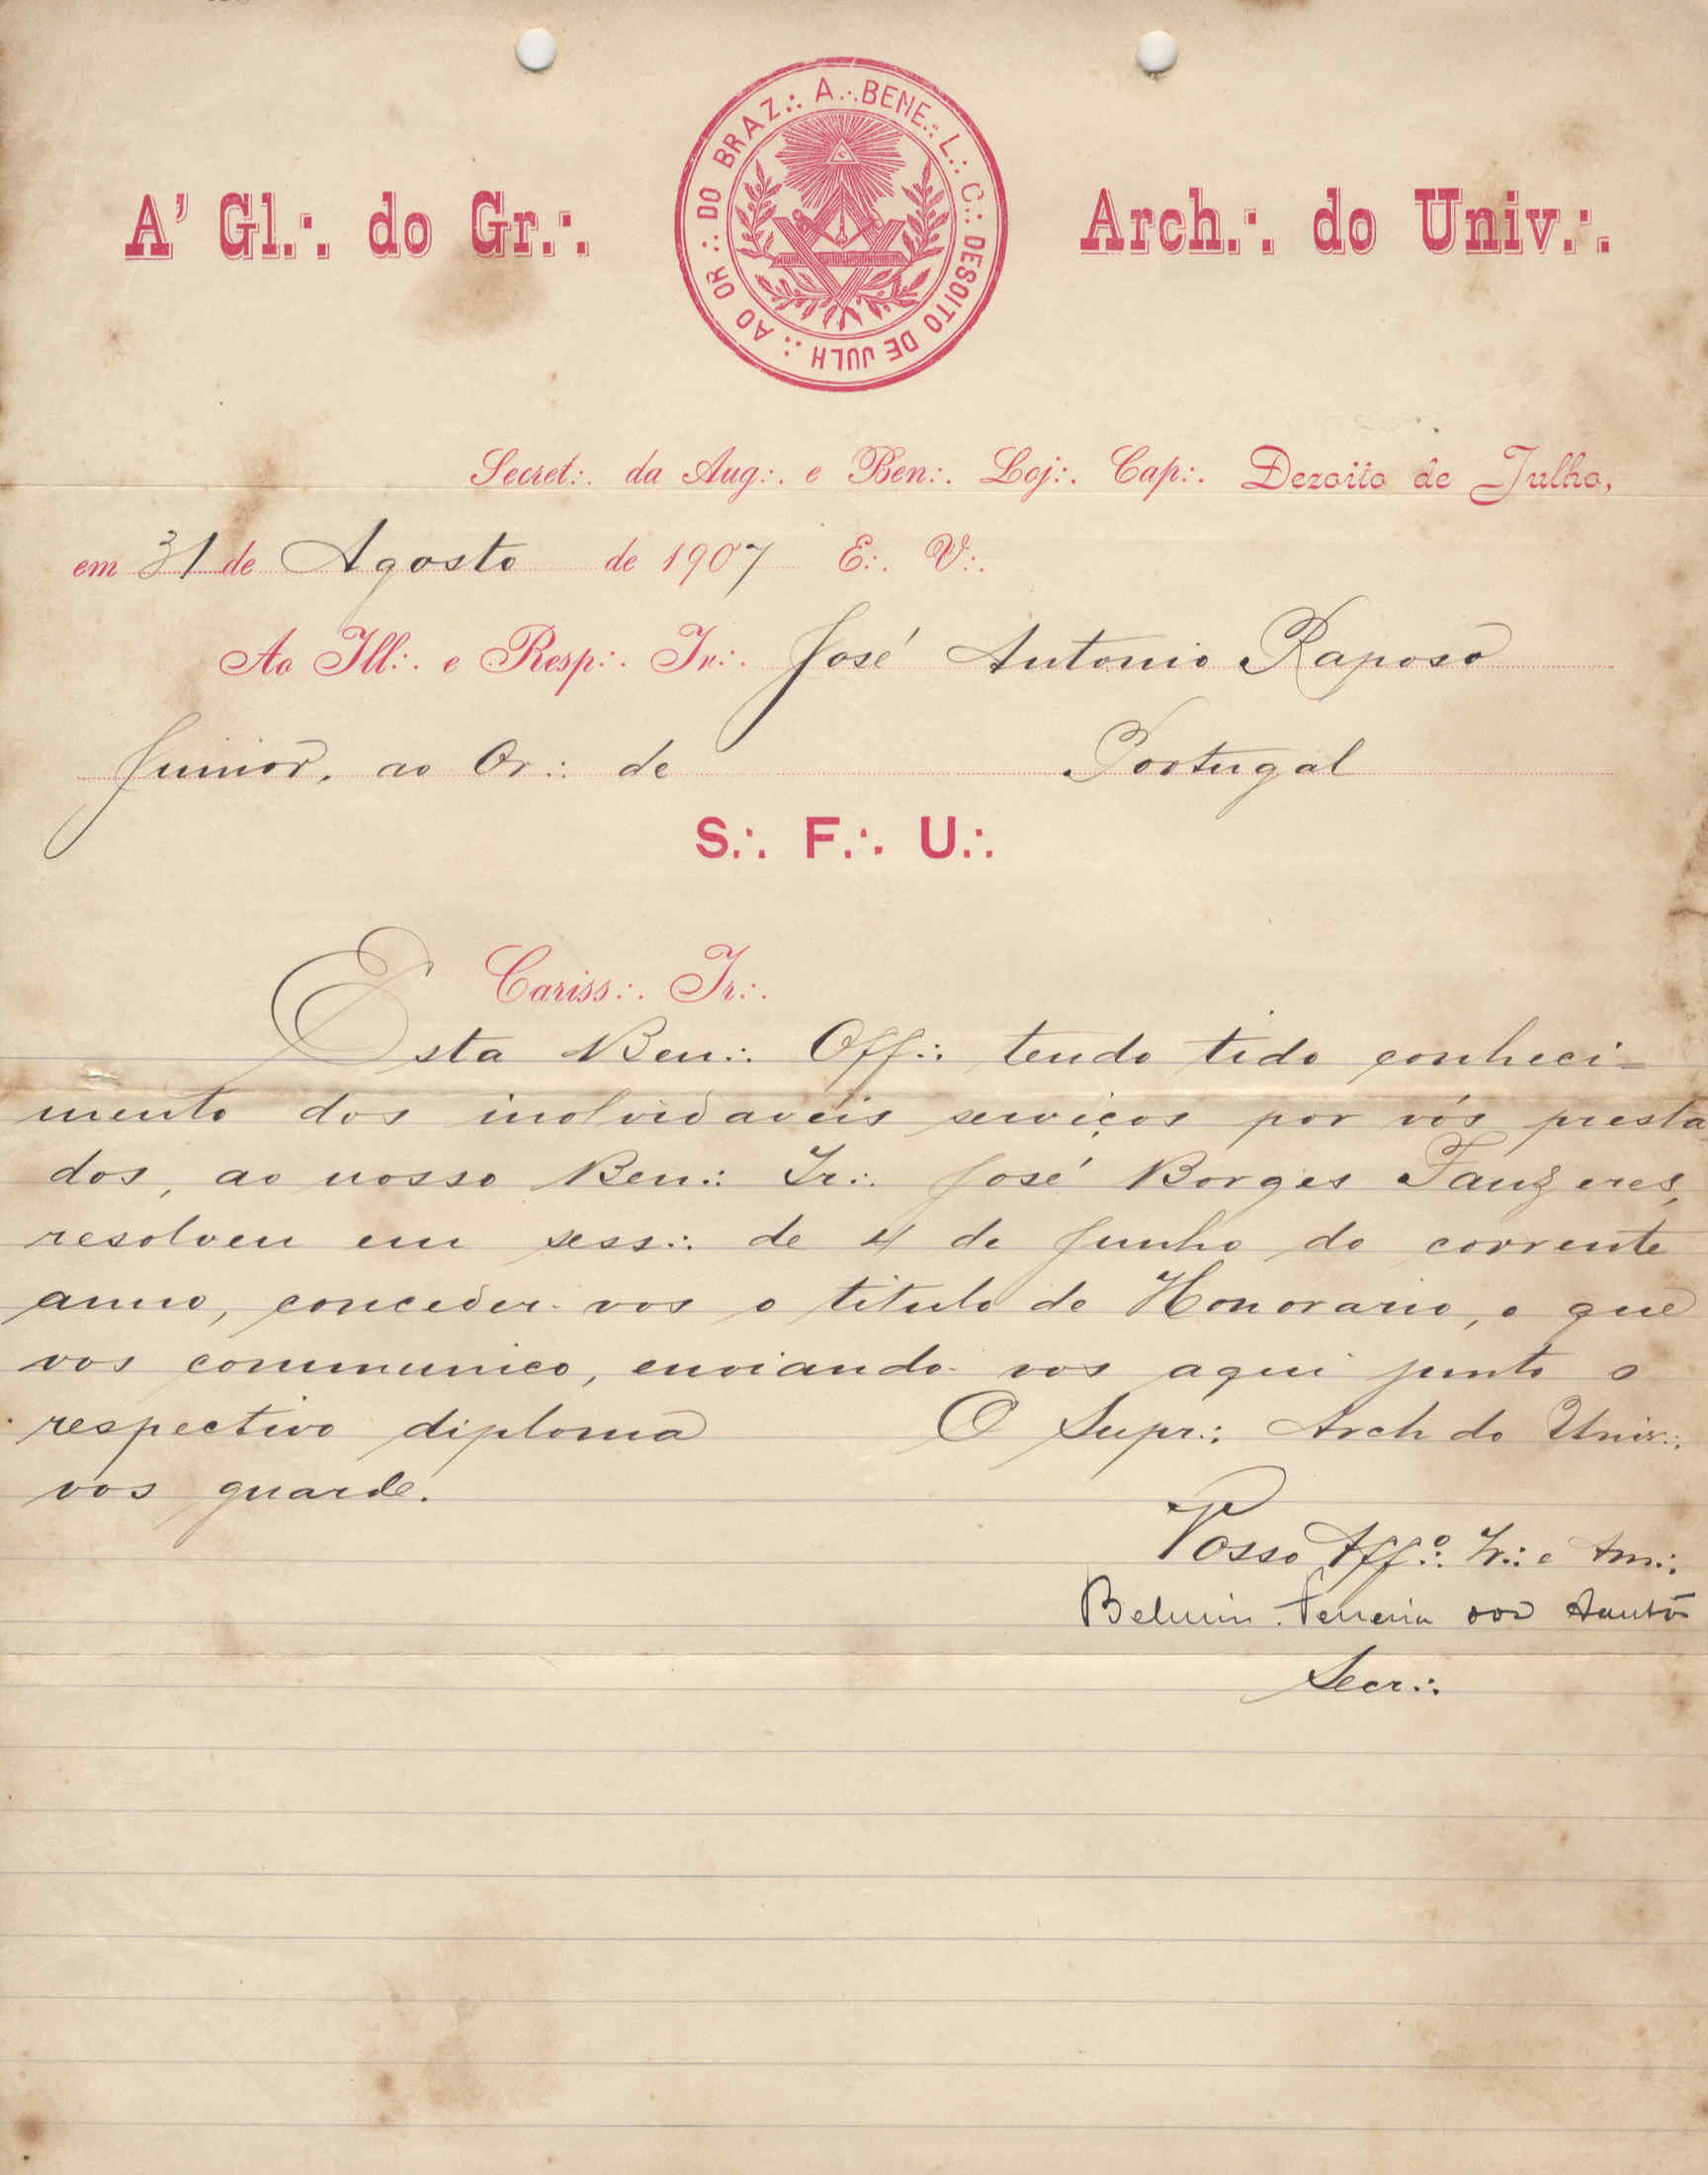 A' Gl.·. do Gr.·.
A.·. BENE.·. L.·. C.·. DESOITO DE JULH.·. AO OR.·. DO BRAZ.·.
Arch.·. do Univ.·.
Secret.·. da Aug.·. e Ben.·. Loj.·. Cap.·. Dezoito de Julho,
em 31 de Agosto de 1907 E.·. V.·.
Ao Ill.·. e Resp.·. Ir.·. José Antonio Raposo
Junior, ao Or.·. de Portugal
S.·. F.·. U.·.
Cariss.·. Ir.·.
Esta Ben.·. Off.·. tendo tido conheci-
mento dos inolvidaveis serviços por vós presta
dos, ao nosso Ben.·. Ir.·. José Borges Fanzeres,
resolveu em sess.·. de 4 de Junho do corrente
anno, conceder-vos o titulo de Honorario, o que
vos communico, enviando-vos aqui junto o
respectivo diploma O Supr.·. Arch do Univ.·.
vos guarde.
Vosso Aff.º.·. Ir.·. e Am.·.
Ferreira dos Santos
Secr.·.